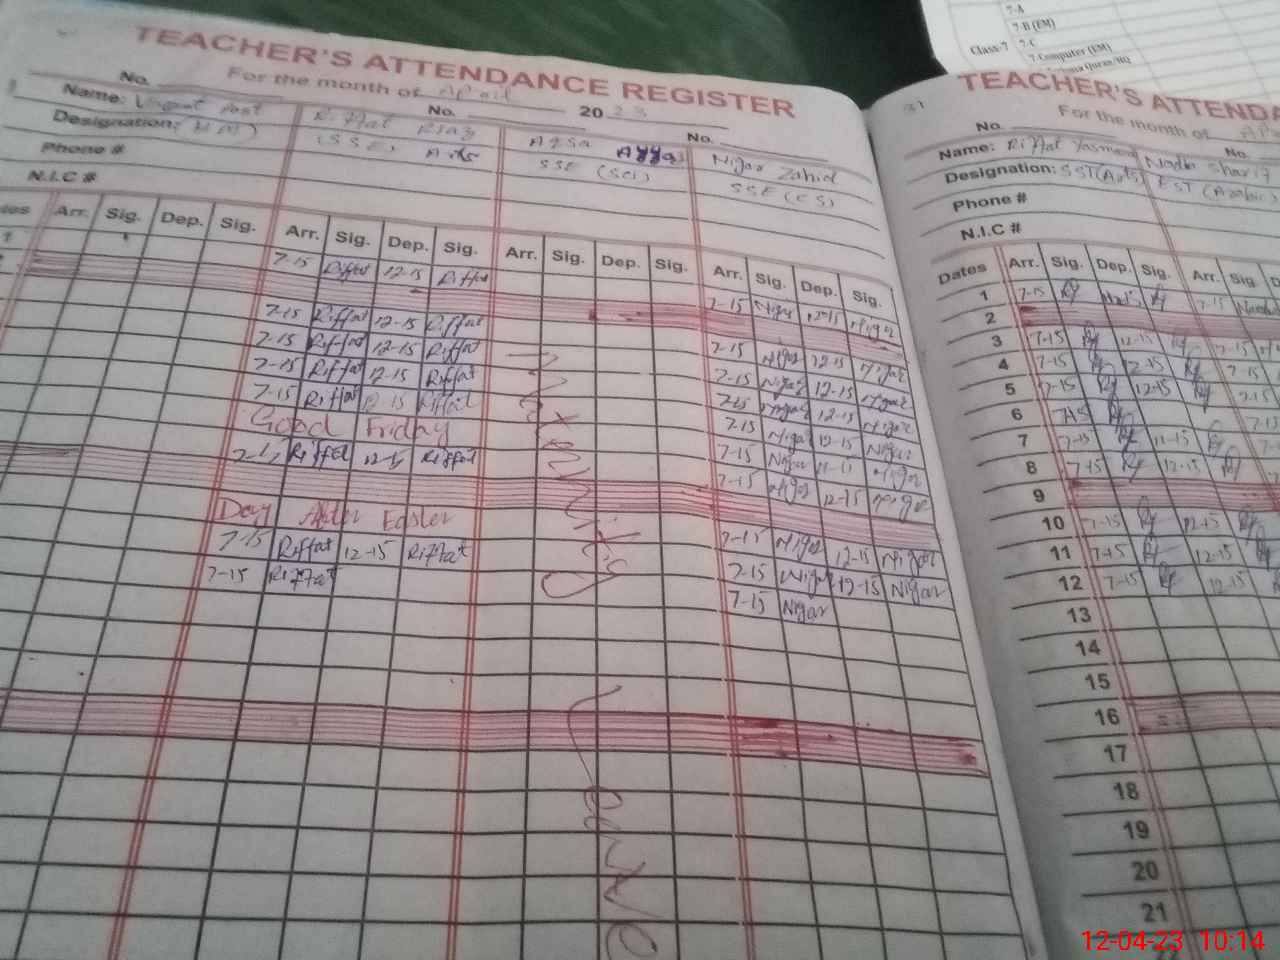 7-A
7-B (EM)
Class-7 7-C
7-Computer (EM)
TEACHER'S ATTENDANCE REGISTER
For the month of April 2023
No. No. No.
Name: Vacant Post Riffat Riaz Aqsa Nigar Zahid
Designation: (HM) (SSE) Arts SSE (Sci) SSE (CS)
Phone #
N.I.C #
Arr. Sig. Dep. Sig. Arr. Sig. Dep. Sig. Arr. Sig. Dep. Sig. Arr. Sig. Dep. Sig.
7-15 Riffat 12-15 Riffat 7-15 Nigar 12-15 Nigar
7-15 Riffat 12-15 Riffat 7-15 Nigar 12-15 Nigar
7-15 Riffat 12-15 Riffat 7-15 Nigar 12-15 Nigar
7-15 Riffat 12-15 Riffat 7-15 Nigar 12-15 Nigar
7-15 Riffat 12-15 Riffat 7-15 Nigar 12-15 Nigar
Good Friday 7-15 Nigar Nigar
Riffat 12-15 Riffat 7-15 Nigar 12-15 Nigar
Day After Easter 7-15 Nigar 12-15 Nigar
7-15 Riffat 12-15 Riffat 7-15 Nigar 12-15 Nigar
7-15 Riffat 7-15 Nigar
Maternity
Leave
31
TEACHER'S ATTENDA
For the month of
No. No.
Name: Riffat Yasmeen Nadia Sharif
Designation: SST(Arts) EST (Arabic)
Phone #
N.I.C #
Dates Arr. Sig. Dep. Sig. Arr. Sig.
1 7-15 7-15
2
3 7-15 12-15 7-15
4 7-15 12-15 7-15
5 7-15 12-15 7-15
6
7 7-15
8 7-15 12-15
9
10 7-15 12-15
11 7-15 12-15
12 7-15 12-15
13
14
15
16
17
18
19
20
21
12-04-23 10:14